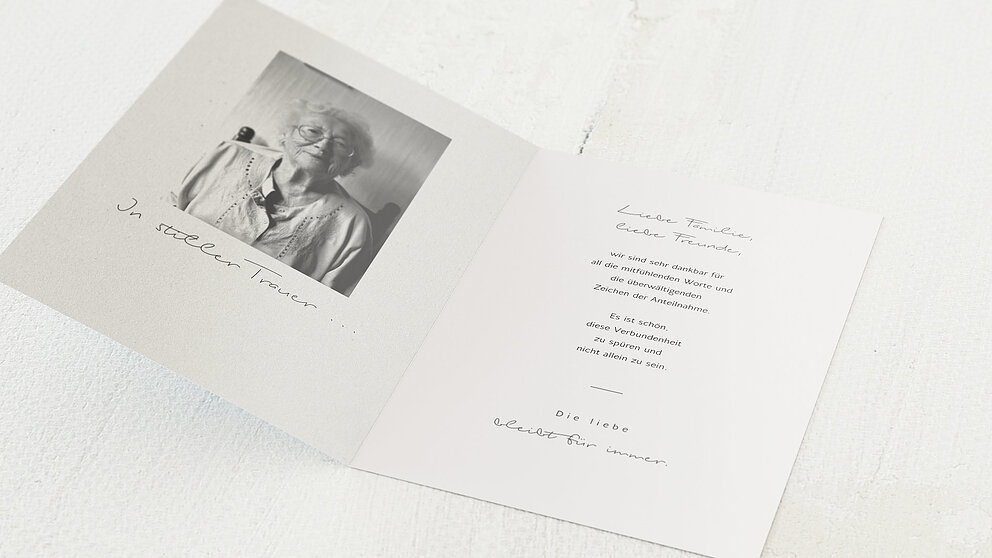 In stiller Trauer ...
Liebe Familie,
liebe Freunde,
wir sind sehr dankbar für
all die mitfühlenden Worte und
die überwältigenden
Zeichen der Anteilnahme.
Es ist schön,
diese Verbundenheit
zu spüren und
nicht allein zu sein.
Die liebe
bleibt für immer.